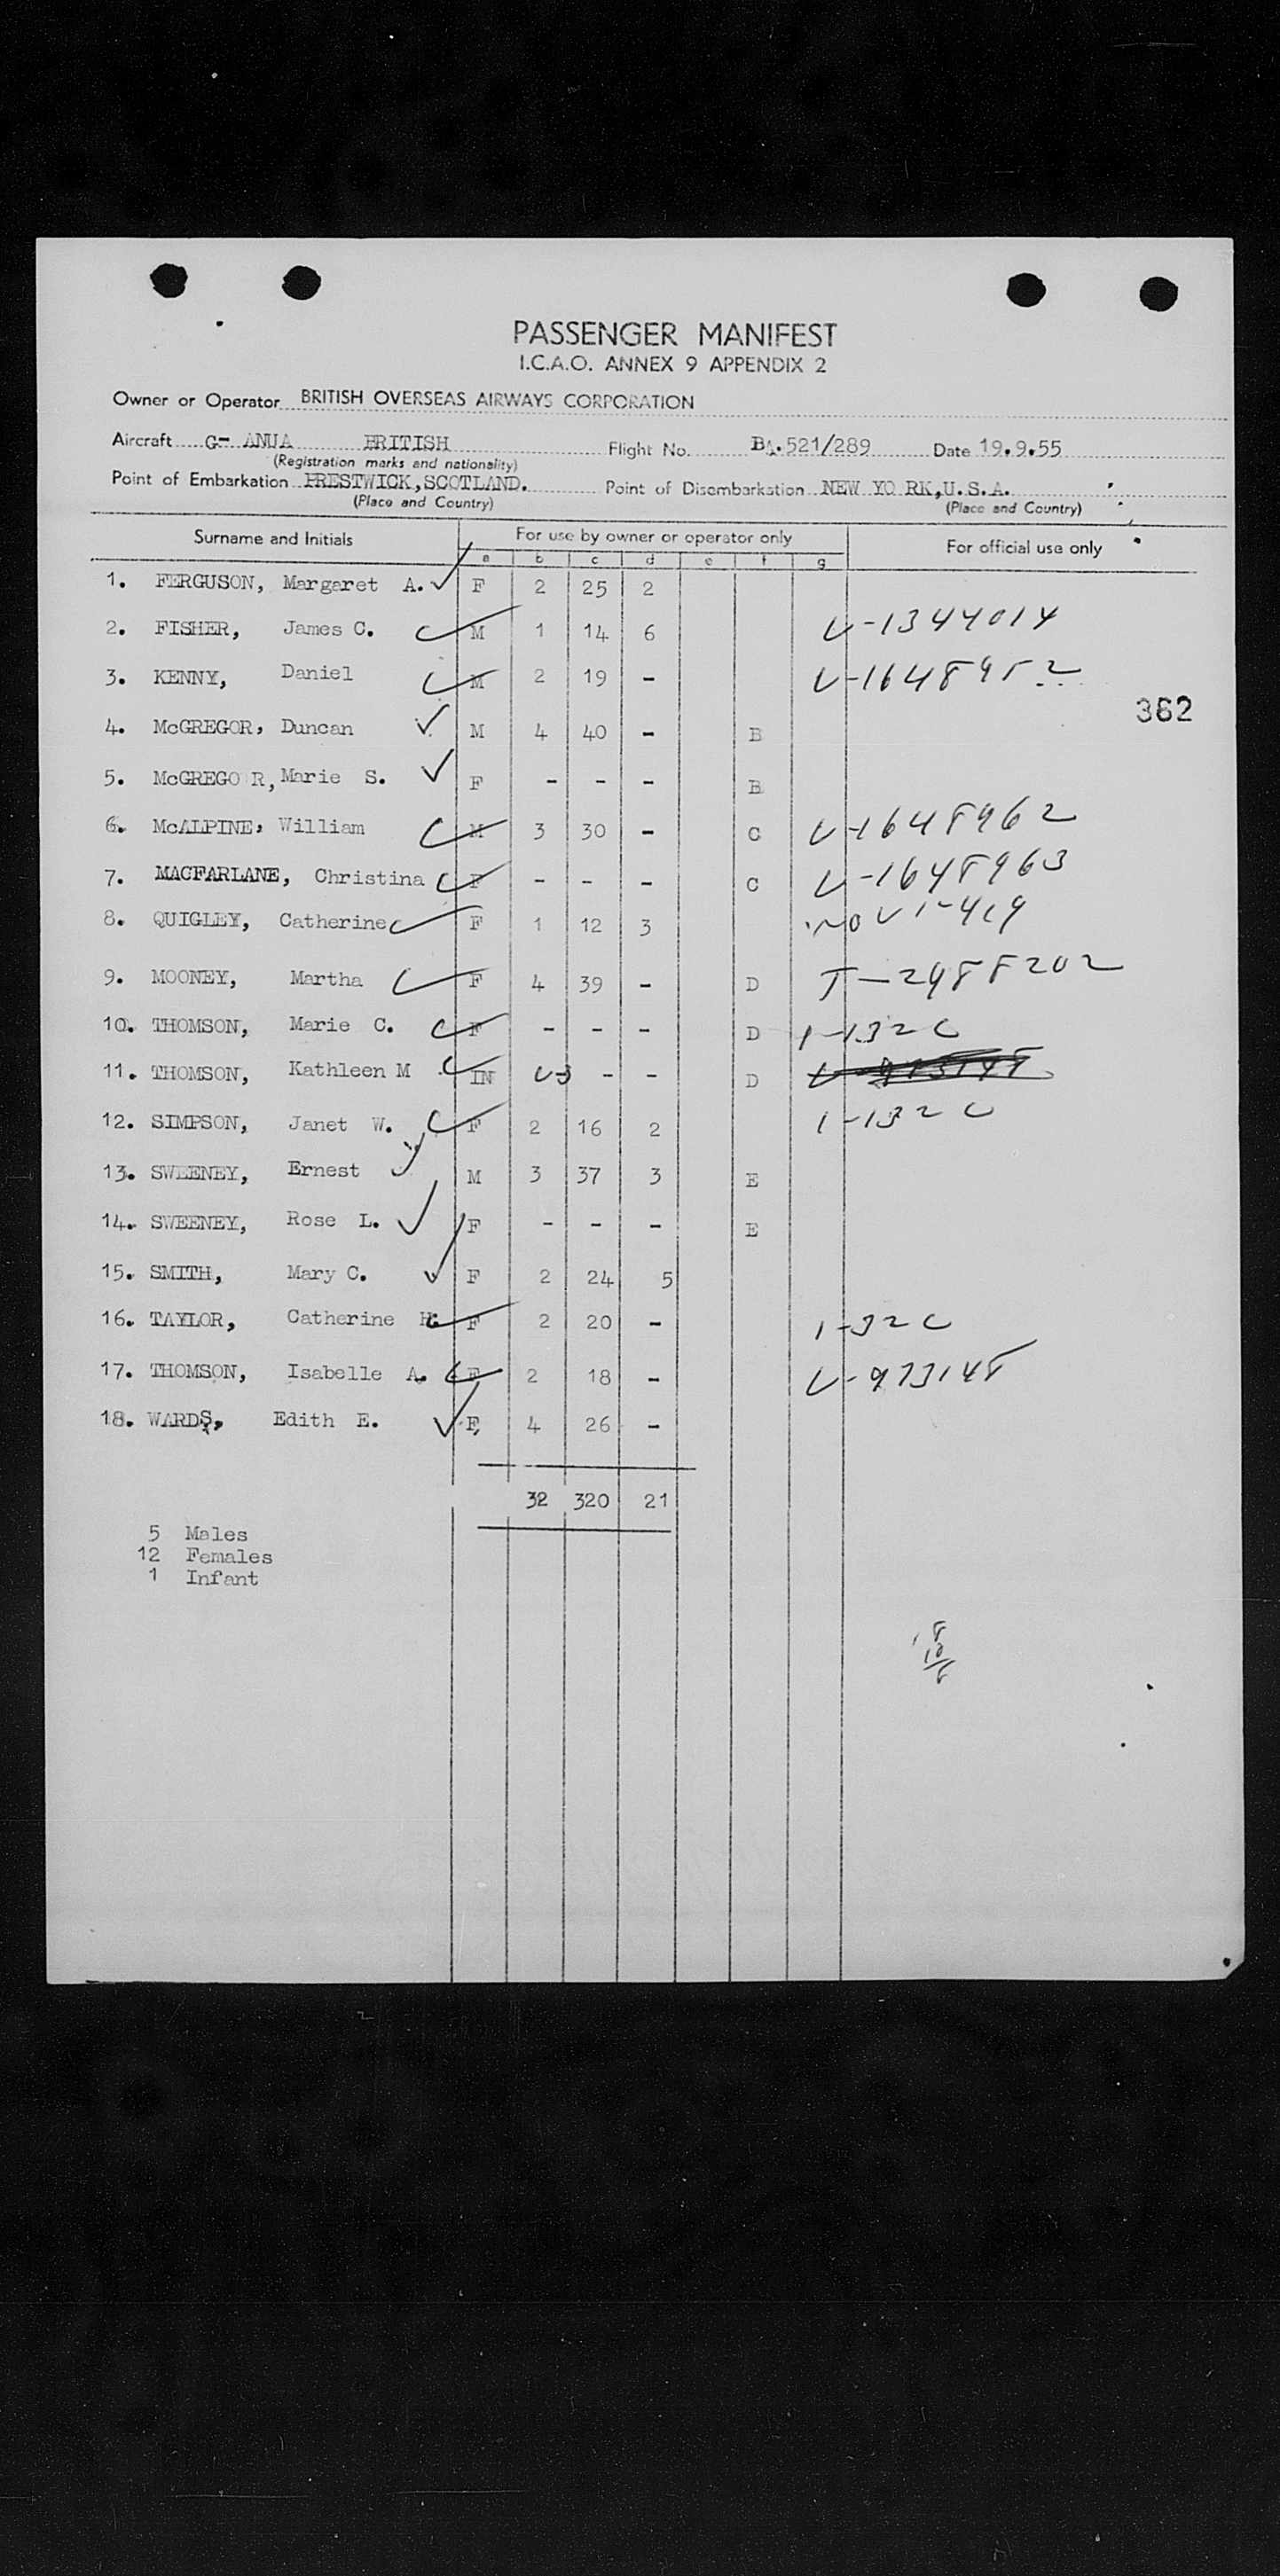 PASSENGER MANIFEST
I.C.A.O. ANNEX 9 APPENDIX 2
Owner or Operator BRITISH OVERSEAS AIRWAYS CORPORATION
Aircraft G- ANUA BRITISH Flight No. BA.521/289 Date 19.9.55
(Registration marks and nationality)
Point of Embarkation PRESTWICK,SCOTLAND. Point of Disembarkation NEW YO RK,U.S.A.
(Place and Country) (Place and Country)
Surname and Initials For use by owner or operator only For official use only
a b c d e f g
1. FERGUSON, Margaret A. F 2 25 2
2. FISHER, James C. M 1 14 6 V-1344014
3. KENNY, Daniel M 2 19 - V-1648952
362
4. McGREGOR, Duncan M 4 40 - B
5. McGREGO R, Marie S. F - - - B
6. McALPINE, William M 3 30 - C V-1648962
7. MACFARLANE, Christina F - - - C V-1648963
8. QUIGLEY, Catherine F 1 12 3
9. MOONEY, Martha F 4 39 - D T-2988202
10. THOMSON, Marie C. F - - - D 1-132C
11. THOMSON, Kathleen M IN - - D
12. SIMPSON, Janet W. F 2 16 2 1-132C
13. SWEENEY, Ernest M 3 37 3 E
14. SWEENEY, Rose L. F - - - E
15. SMITH, Mary C. F 2 24 5
16. TAYLOR, Catherine H. F 2 20 - 1-32C
17. THOMSON, Isabelle A. F 2 18 - V-973148
18. WARDS, Edith E. F 4 26 -
32 320 21
5 Males
12 Females
1 Infant